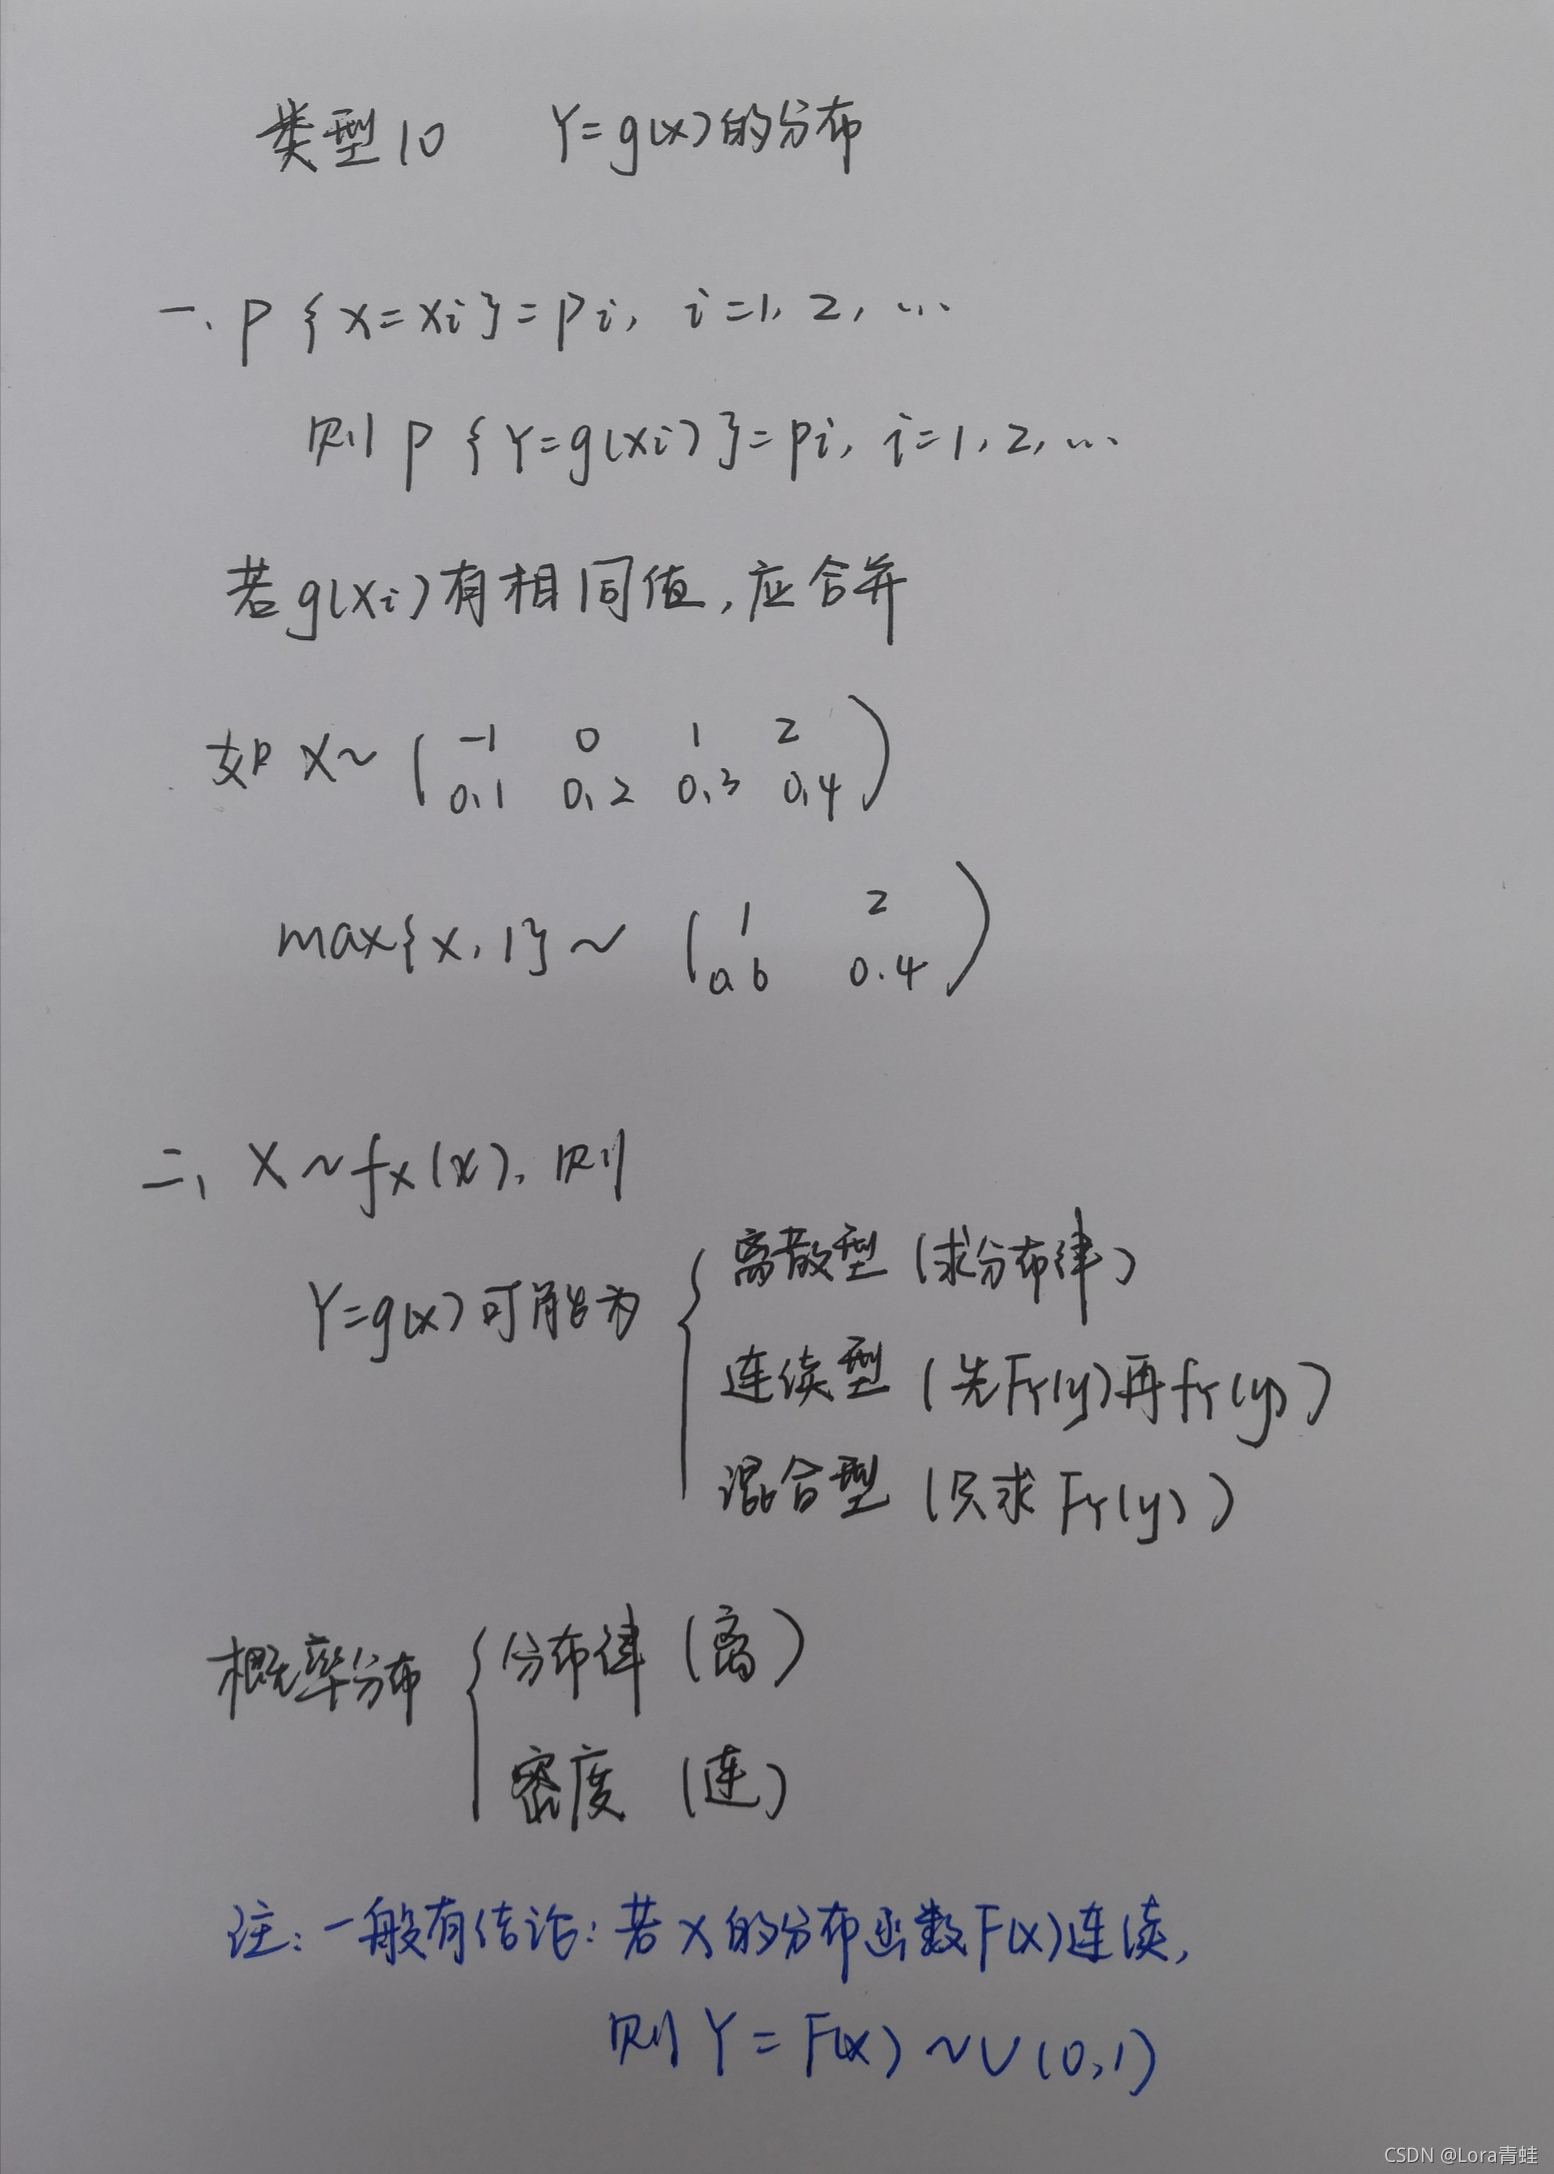 类型10 Y=g(x)的分布
一、P{X=xi}=Pi, i=1, 2, …
则P{Y=g(xi)}=Pi, i=1, 2, …
若g(xi)有相同值,应合并
如 X~ ( -1 0 1 2
0.1 0.2 0.3 0.4 )
max{X, 1}~ ( 1 2
0.6 0.4 )
二、X~fX(x), 则
离散型 (求分布律)
Y=g(x)可能为 {
连续型 (先FY(y)再fY(y))
混合型 (只求FY(y))
概率分布 { 分布律 (离)
密度 (连)
注:一般有结论:若X的分布函数F(x)连续,
则Y=F(x)~U(0,1)
CSDN @Lora青蛙